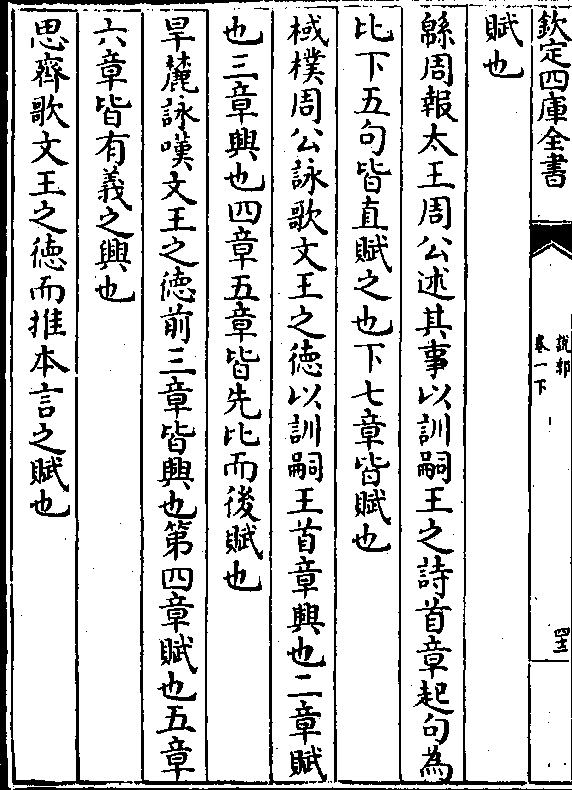 欽定四庫全書
說郛
卷一下
四十三
賦也
緜周報太王周公述其事以訓嗣王之詩首章起句為
比下五句皆直賦之也下七章皆賦也
棫樸周公詠歌文王之徳以訓嗣王首章興也二章賦
也三章興也四章五章皆先比而後賦也
旱麓詠嘆文王之徳前三章皆興也第四章賦也五章
六章皆有義之興也
思齊歌文王之徳而推本言之賦也